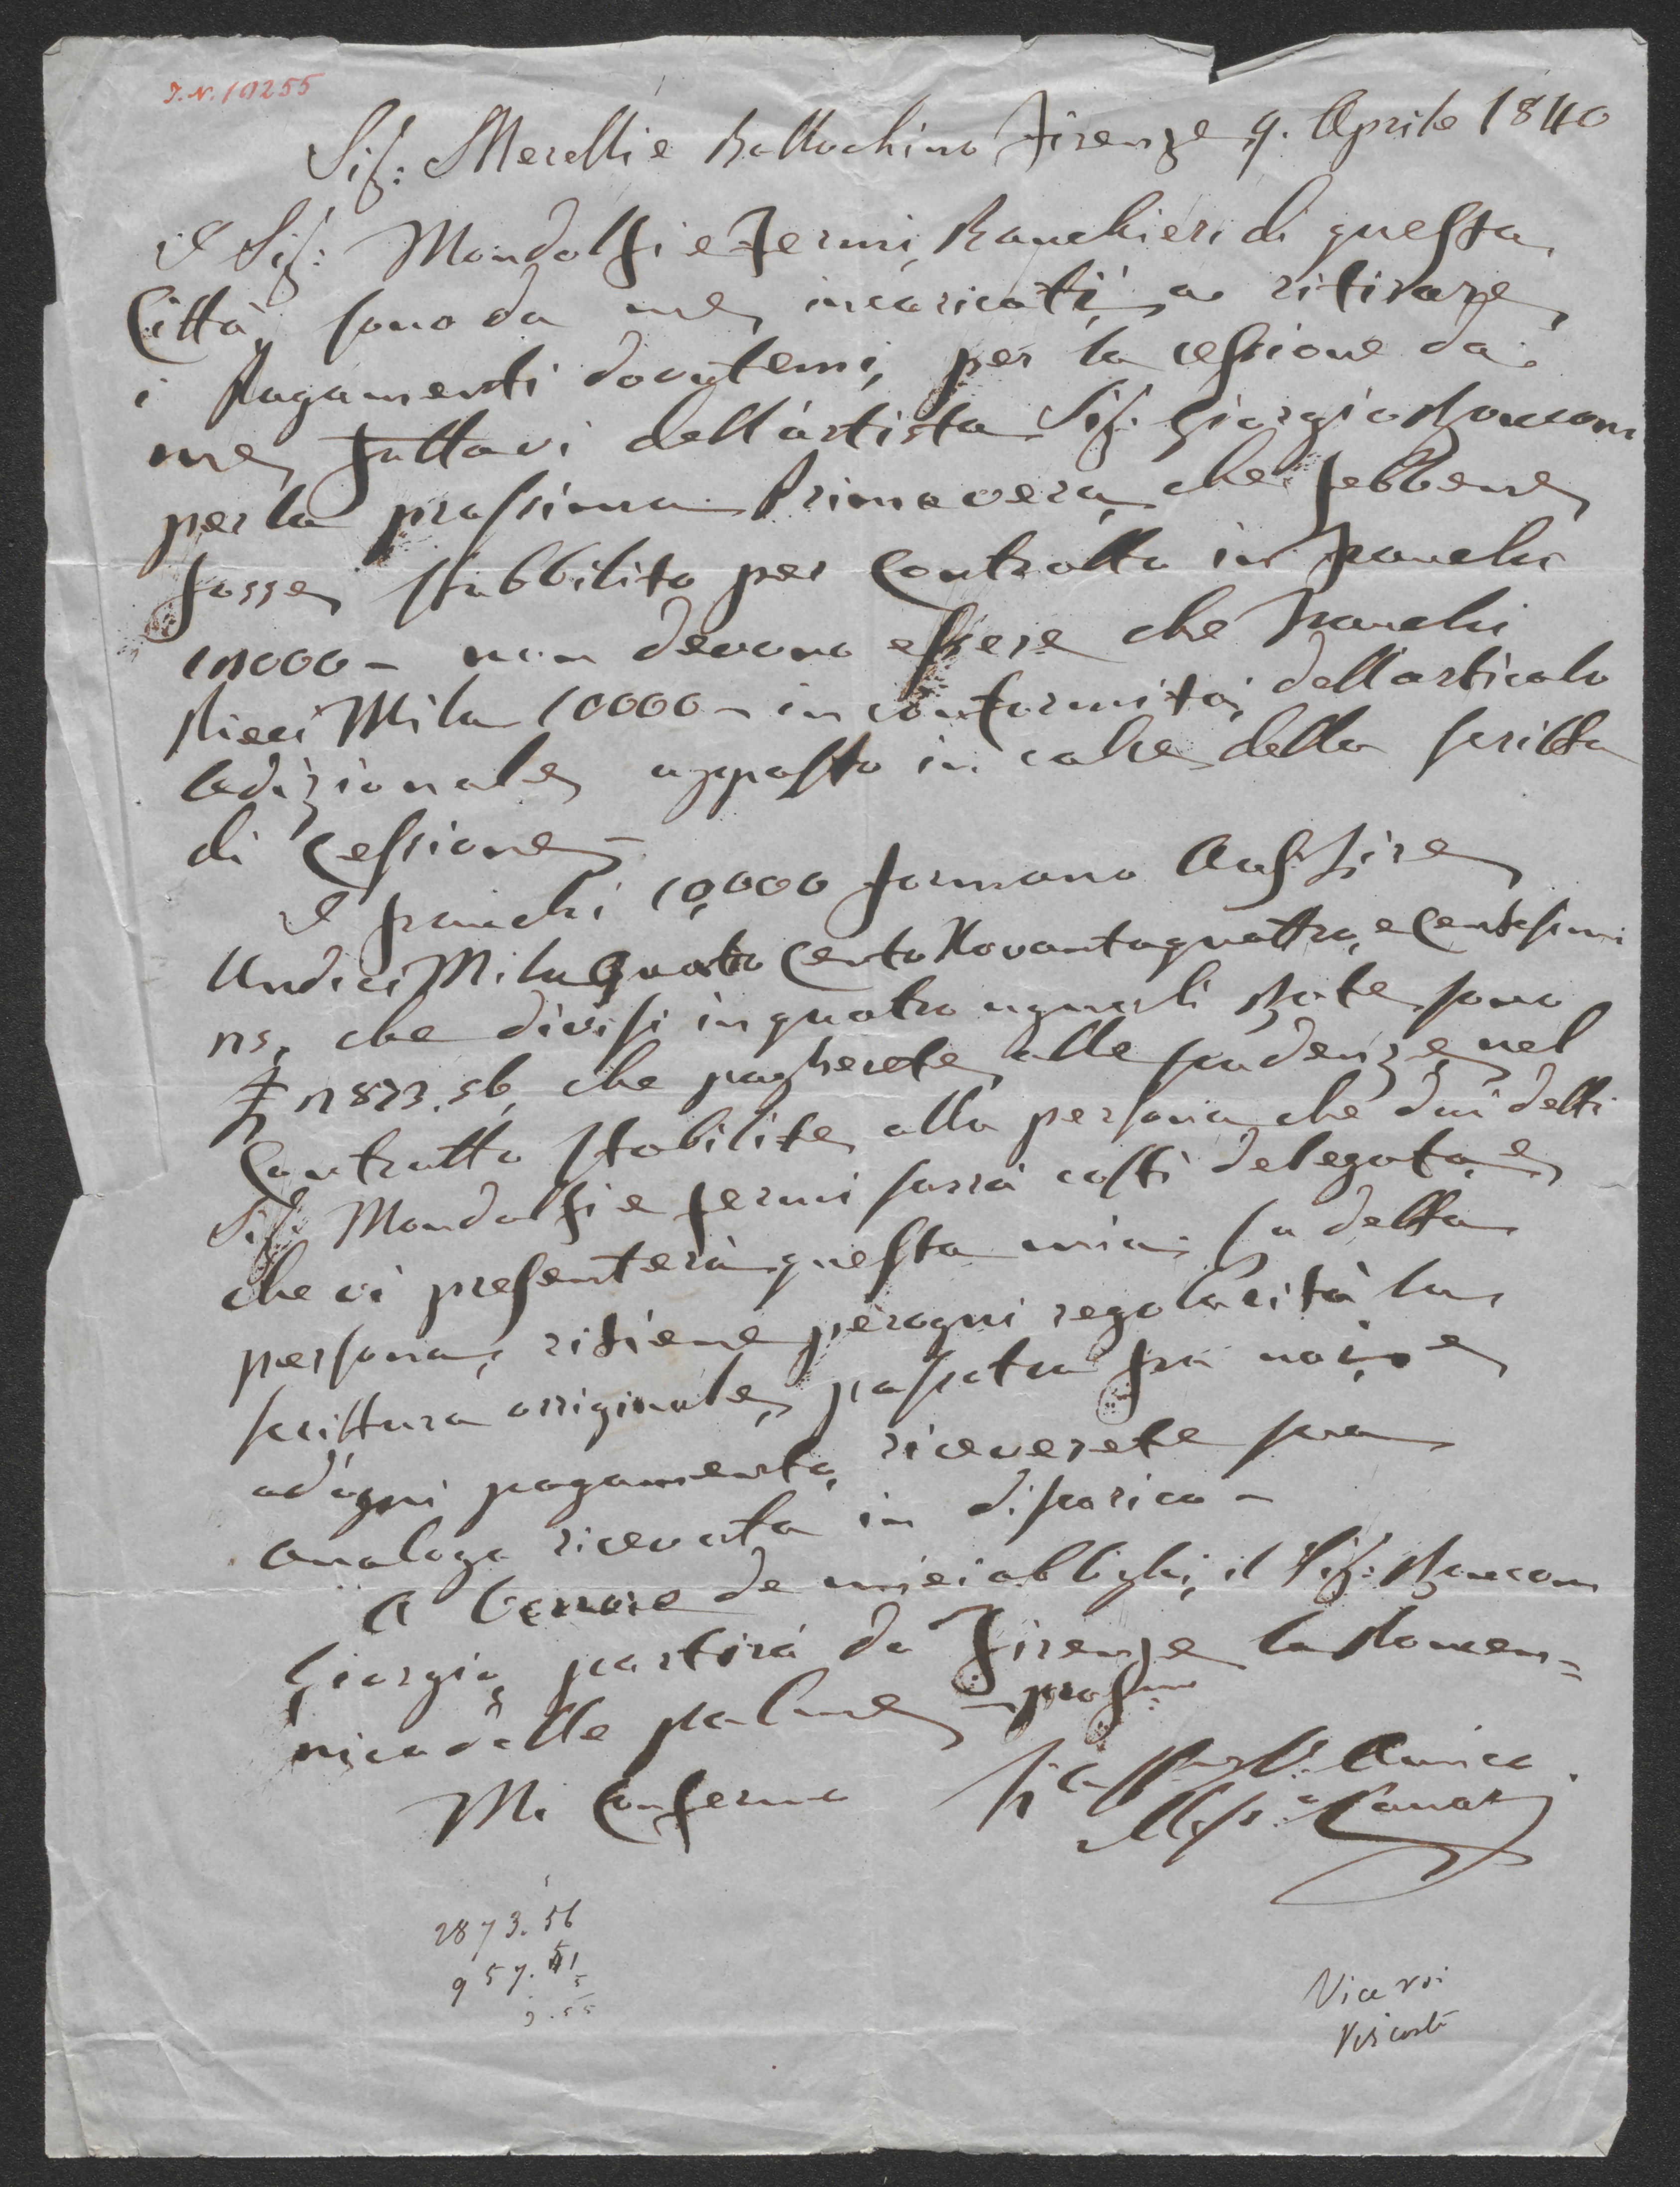 J.N. 10255
Sig: Merelli e Ballochino Firenze 9. Aprile 1840
I Sig: Mondolfi e Fermi, Banchieri di questa
Città, sono da me incaricati, a ritirare
i Pagamenti dovutemi, per la cessione da
me fattavi dell'artista Sig: Giorgio Ronconi
per la prossima Primavera, che sebbene
fosse stabbilito per Contratto in Franchi
000 – non devono essere che Franchi
Dieci Mila 10000 – in conformità, dell'articolo
Adizionale apposto in calce della scritta
di Cessione –
I franchi 10,000 formano Aus: Lire
Undici Mila Quatro Cento Novantaquattro, e Centesimi
25, che divisi in quatro uguali Rate sono
£ 2873.56, che pagherete alle scadenze nel
Contratto stabilite alla persona che dai detti
Sig: Mondolfi e Fermi sarrà costì delegata, e
che vi presenterà questa mia: la detta
persona, ritiene per ogni regolarità la
scrittura originale, passata fra noi, e
ad'ogni pagamento, riceverete sua
analoga ricevuta in discarico –
A tenore de miei oblighi, il Sig: Ronconi
Giorgio, partirà da Firenze la Domen=
nica delle palme – pross:ma
Mi Confermo Amico
Aless:o Lanari
2873.56
957.51
Vice roi
Visconti